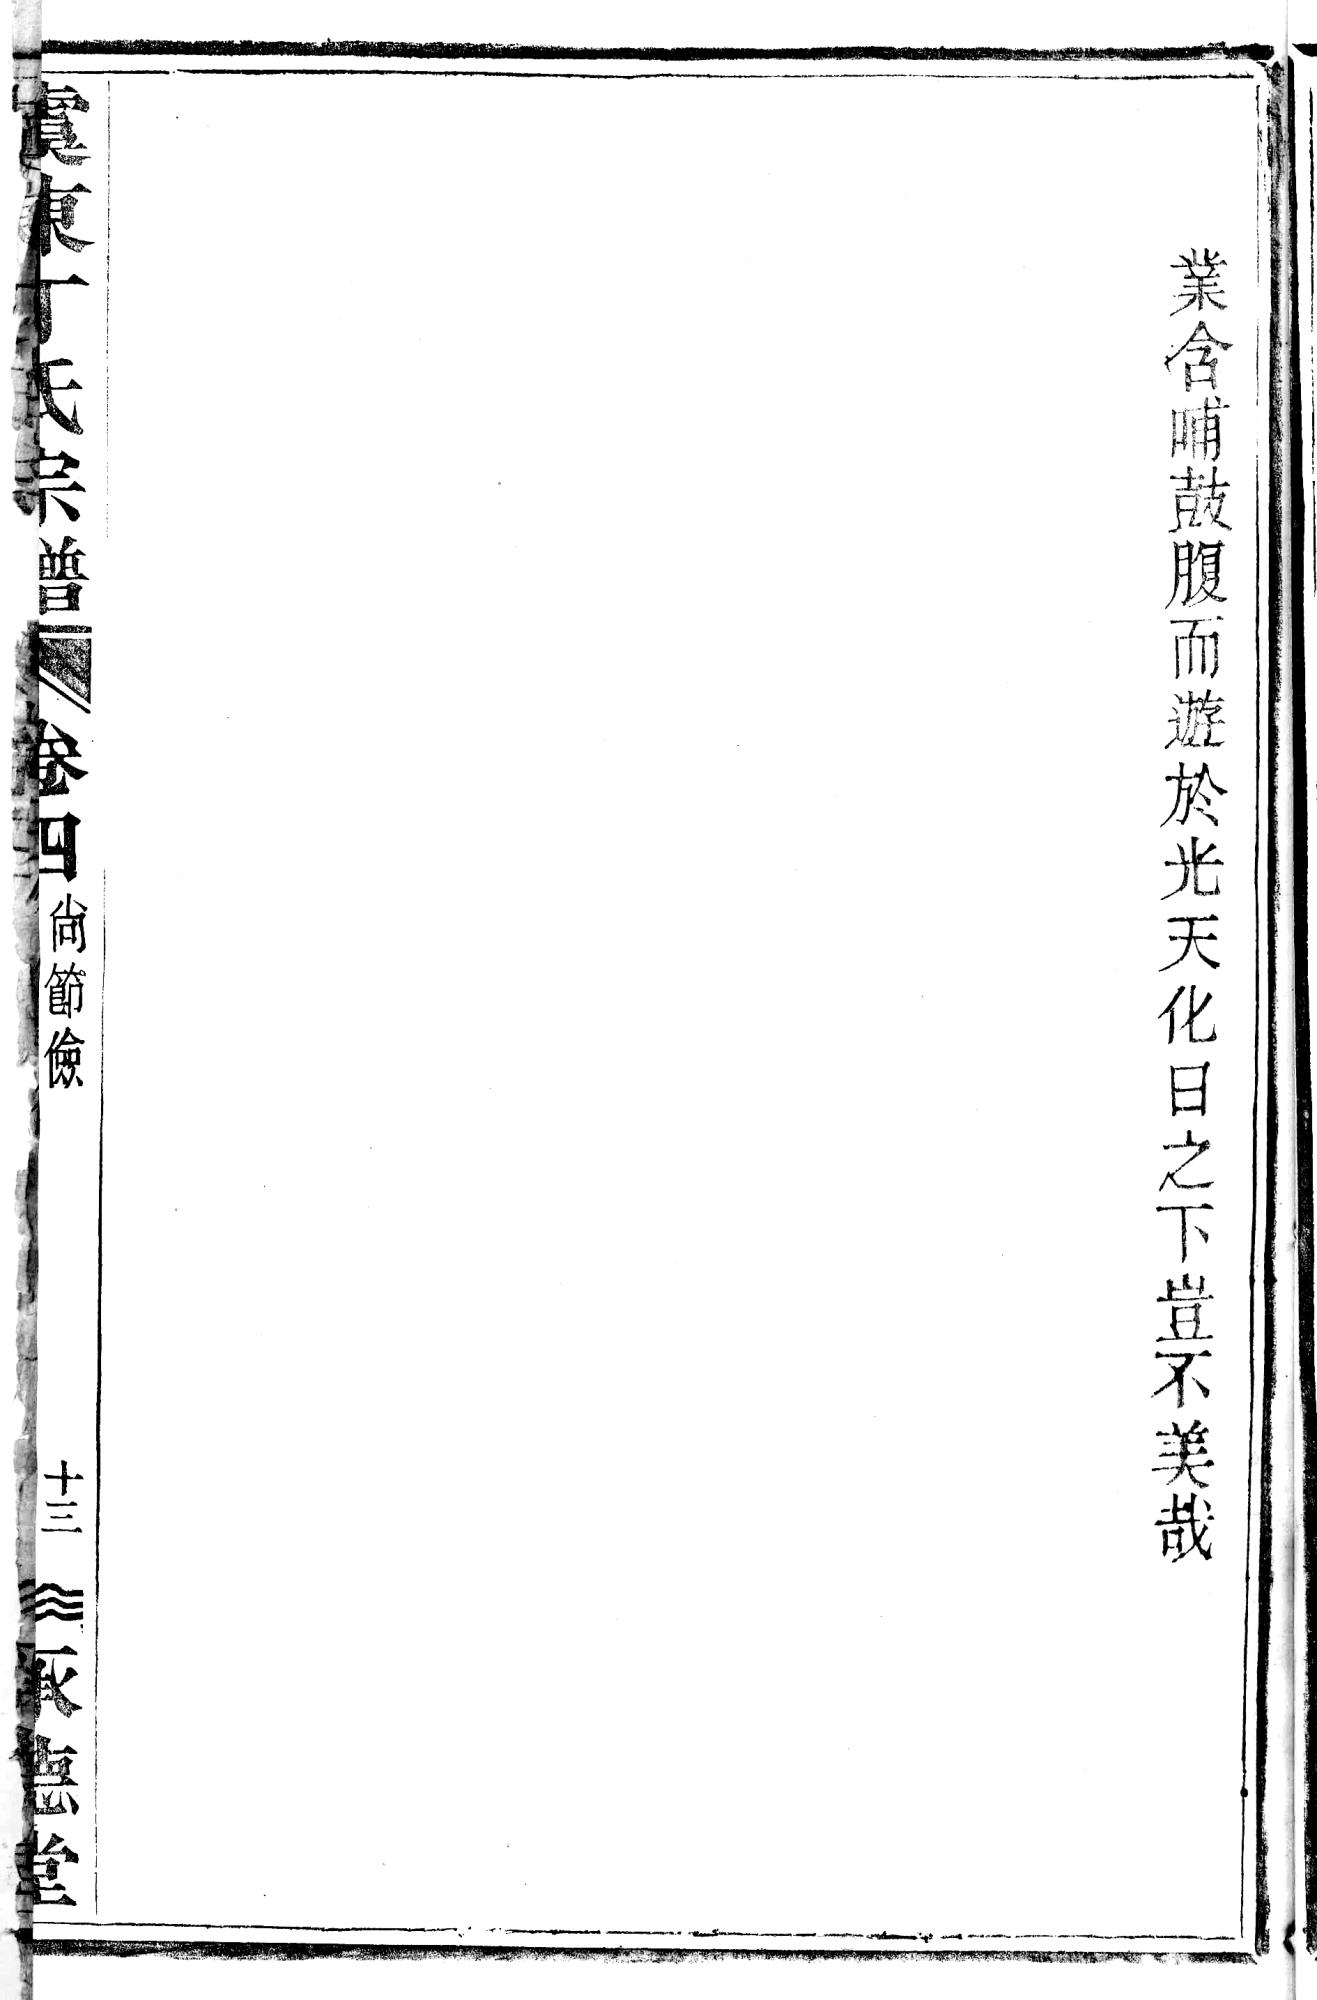 業含哺鼓腹而遊於光天化日之下豈不美哉
虞東丁氏宗譜
卷四
尚節儉
十三
承德堂